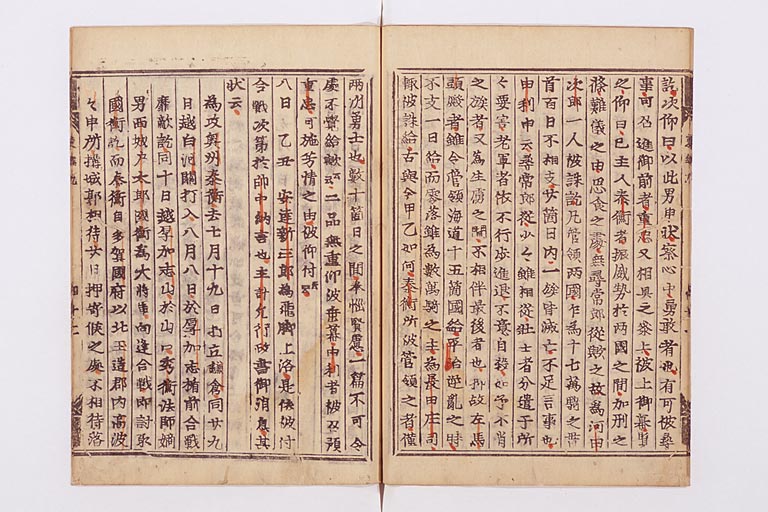 訖次仰曰以此男申状察心中勇敢者也有可被尋
事可召進御前者重忠又相具之参上被上御幕
之仰曰已主人泰衡者振威勢於両國之間加刑之
條難儀之由思食之處無尋常郎従歟之故為河田
次郎一人被誅訖凡管領両國乍為十七萬騎之貫
首百日不相支廿箇日内一族皆滅亡不足言事也
申利申云尋常郎従少々雖相従壮士者分遣于所
々要害老軍者依不行歩進退不意自殺如予不肖
之族者又為生虜之間不相伴最後者也抑故左馬
頭殿者雖令管領海道十五箇國給平治逆乱之時
不支一日給而零落雖為數萬騎之主為長田庄司
輙被誅給古與今甲乙如何泰衡所被管領之者僅
両州勇士也數十箇日之間奉悩賢慮一篇不可令
處不覺給歟云二品無重仰被垂幕由利者被召預
重忠可施芳情之由被仰付云
八日 乙丑 安達新三郎為飛脚上洛是依被付
今戦次第於帥中納言也主計允行政書御消息其
状云
為攻奥州泰衡去七月十九日打立鎌倉同廿九
日越白河關打入八月八日於厚加志楯前合戦
靡敵訖同十日越厚加志山於山口秀衡法師嫡
男西城戸太郎國衡為大将軍向逢合戦即討取
國衡訖而泰衡自多賀國府以北玉造郡内高波
々申所搆城郭相待廿日押寄候之處不相待落